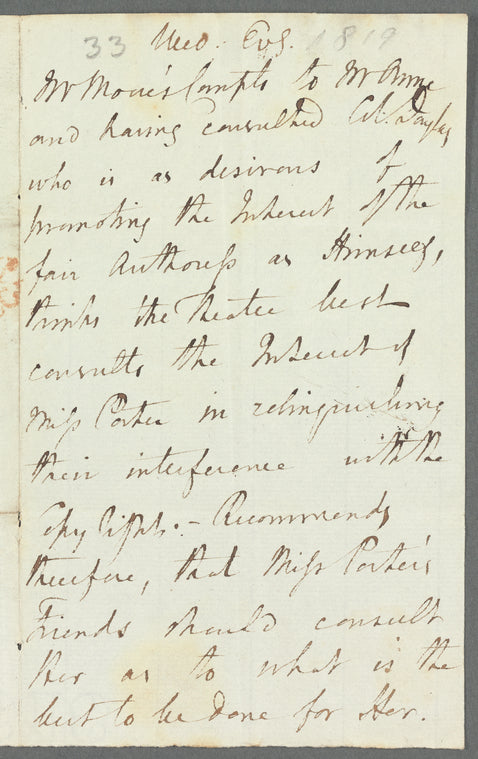 33 Wed. Evg. 1819
Mr Moore's Compts to Mr
and having consulted Col. Taylor
who is as desirous of
promoting the Interest of the
fair Authoress as Himself,
thinks the Theatre best
consults the Interest of
Miss Porter in relinquishing
their interference with the
Copy Right. – Recommends
therefore, that Miss Porter's
Friends should consult
Her as to what is the
best to be done for Her.